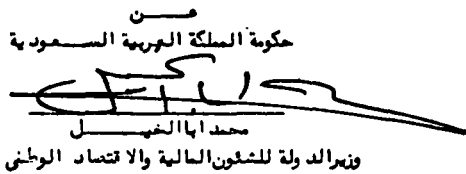 عن
حكومة المملكة العربية السعودية
محمد ابا الخيل
وزير الدولة للشئون المالية والاقتصاد الوطني